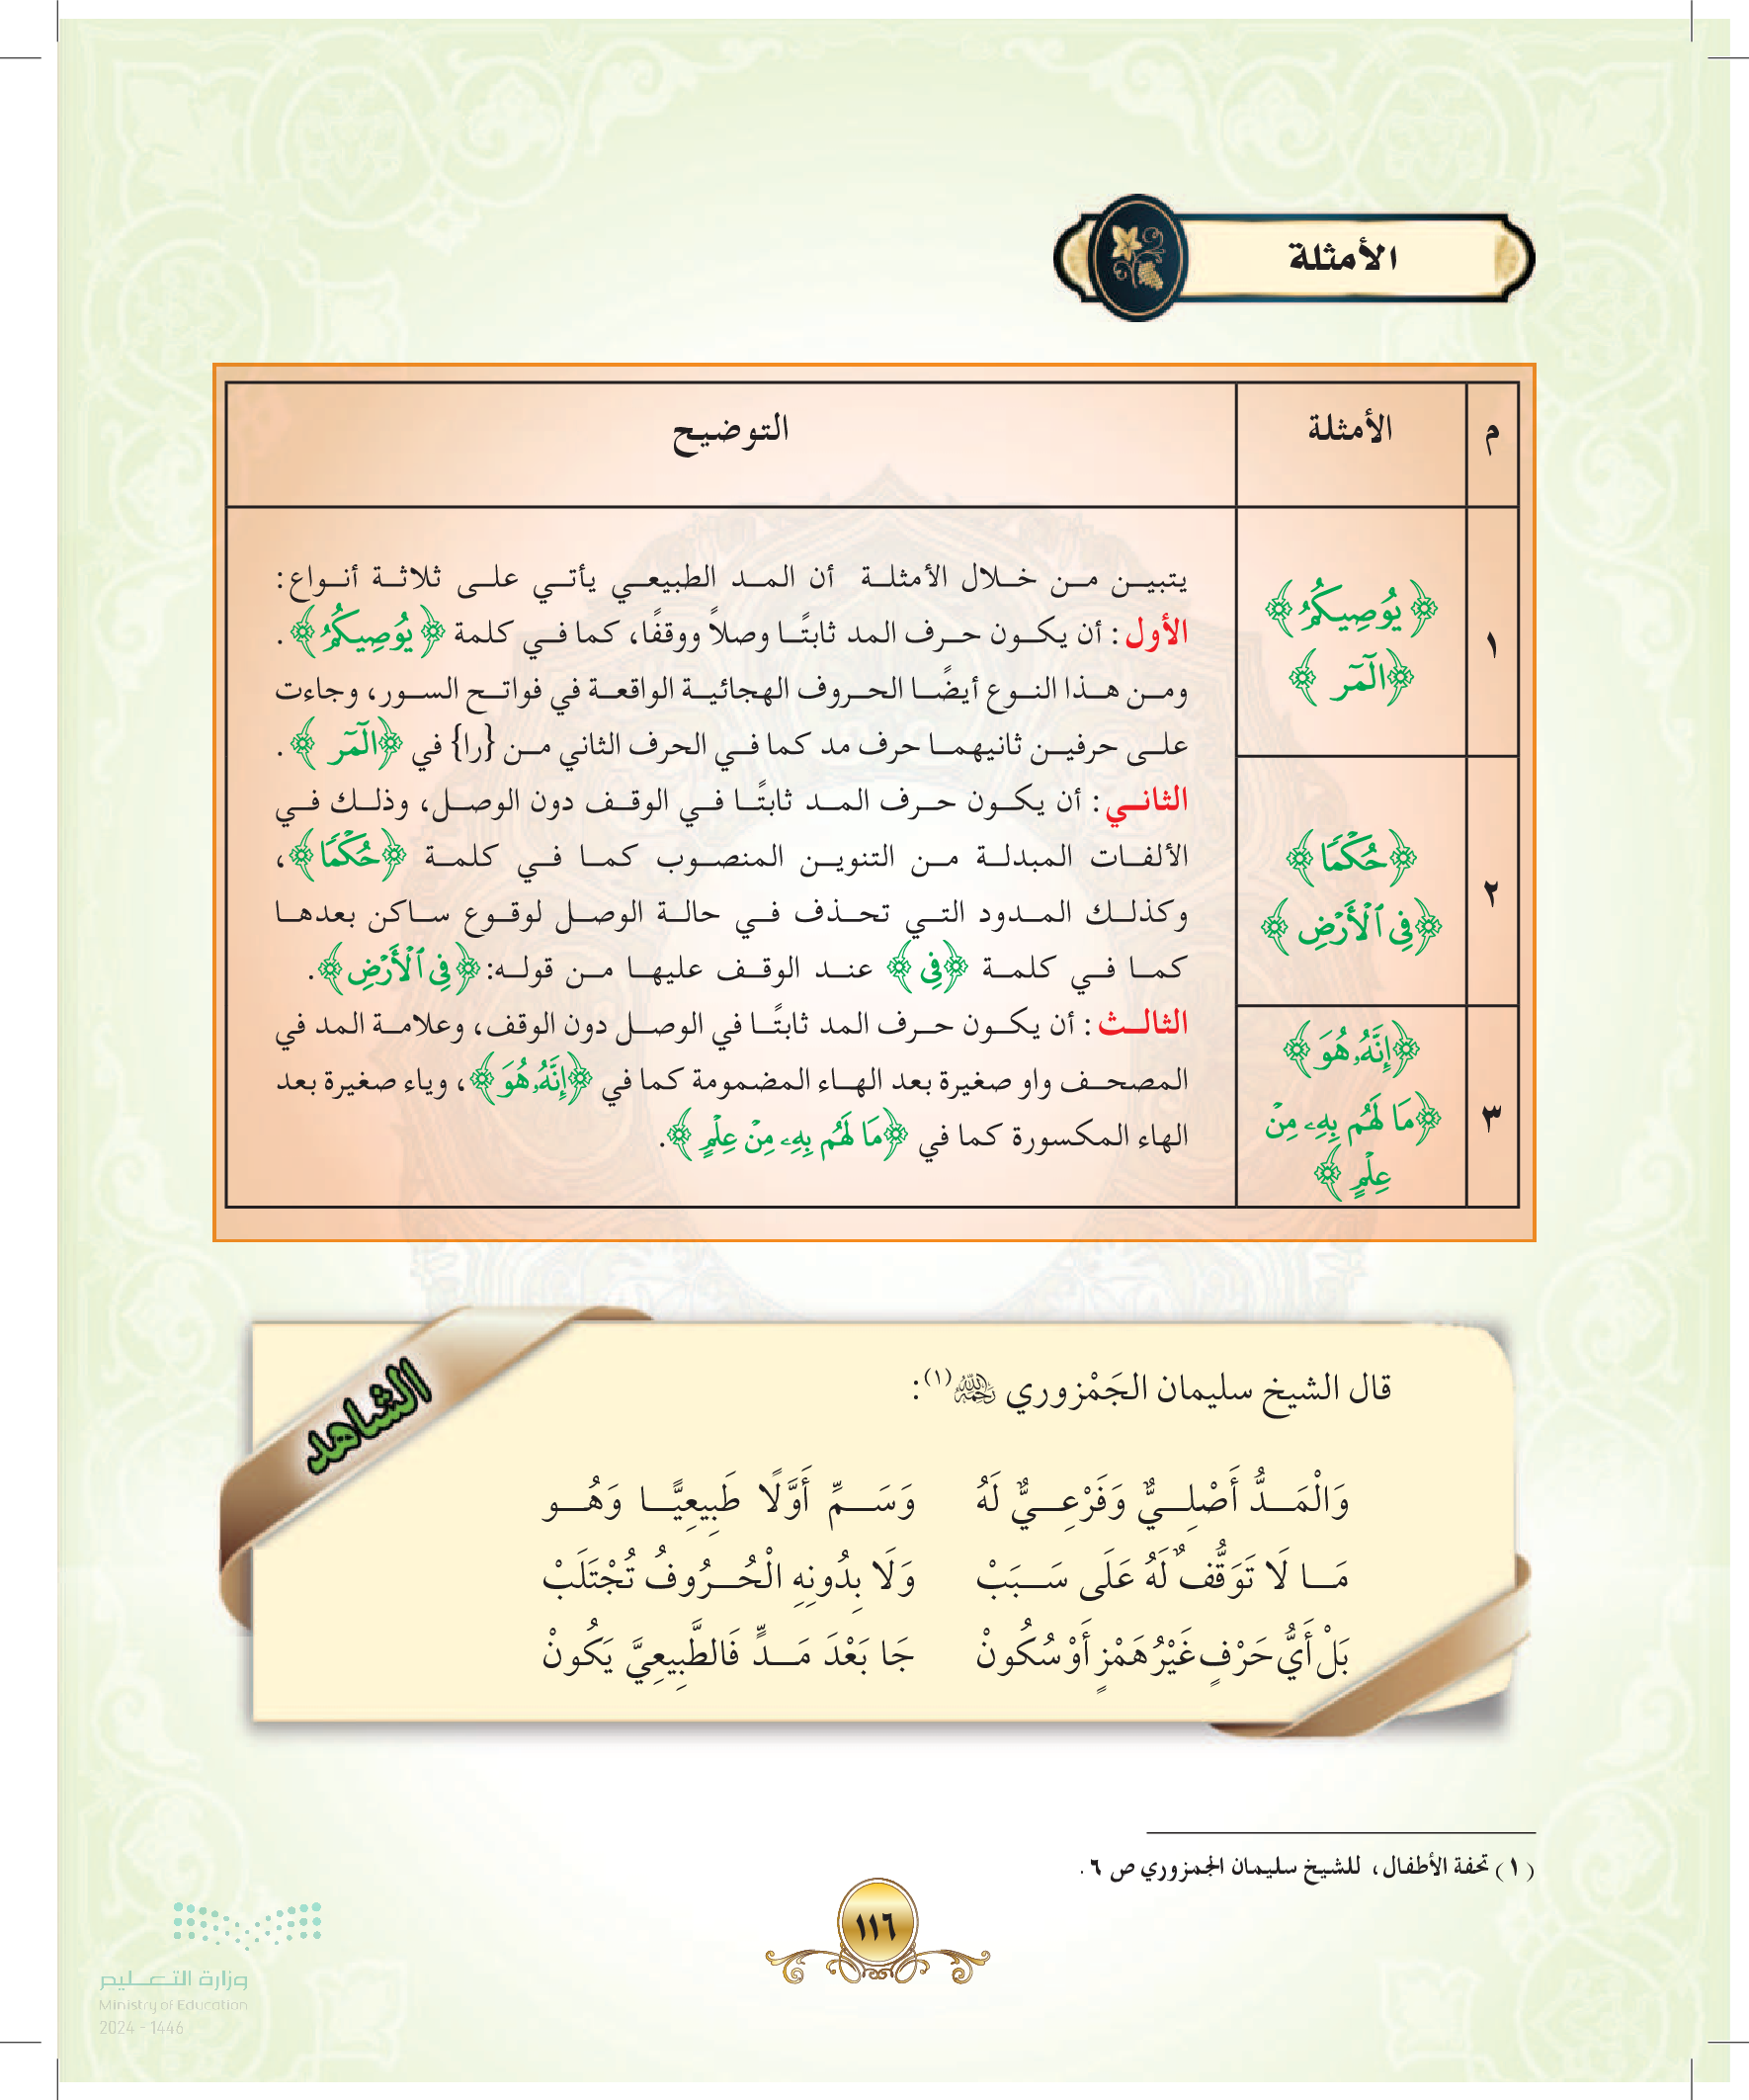 الأمثلة
م
الأمثلة
التوضيح
١
﴿يُوصِيكُمُ﴾
﴿الٓمٓر﴾
٢
﴿حُكۡمٗا﴾
﴿فِي ٱلۡأَرۡضِ﴾
٣
﴿إِنَّهُۥ هُوَ﴾
﴿مَا لَهُم بِهِۦ مِنۡ
عِلۡمٍ﴾
يتبيـن مـن خـلال الأمثلـة أن المـد الطبيعـي يأتـي علـى ثلاثـة أنـواع:
الأول: أن يكـون حـرف المد ثابتًـا وصلاً ووقفًا، كما فـي كلمة ﴿يُوصِيكُمُ﴾.
ومـن هـذا النـوع أيضًـا الحـروف الهجائيـة الواقعـة في فواتـح السـور، وجاءت
علـى حرفيـن ثانيهمـا حرف مد كما فـي الحرف الثاني مـن {را} في ﴿الٓمٓر﴾.
الثانـي: أن يكـون حـرف المـد ثابتًـا فـي الوقـف دون الوصـل، وذلـك فـي
الألفـات المبدلـة مـن التنويـن المنصـوب كمـا فـي كلمـة ﴿حُكۡمٗا﴾،
وكذلـك المـدود التـي تحـذف فـي حالـة الوصـل لوقـوع سـاكن بعدهـا
كمـا فـي كلمـة ﴿فِي﴾ عنـد الوقـف عليهـا مـن قولـه: ﴿فِي ٱلۡأَرۡضِ﴾.
الثالـث: أن يكـون حـرف المد ثابتًـا في الوصـل دون الوقف، وعلامـة المد في
المصحـف واو صغيرة بعد الهـاء المضمومة كما في ﴿إِنَّهُۥ هُوَ﴾، وياء صغيرة بعد
الهاء المكسورة كما في ﴿مَا لَهُم بِهِۦ مِنۡ عِلۡمٍ﴾.
الشاهد
قال الشيخ سليمان الجَمْزوري رحمه الله(١):
وَالْمَـدُّ أَصْلِـيٌّ وَفَرْعِـيٌّ لَهُ وَسَـمِّ أَوَّلًا طَبِيعِيًّـا وَهُـو
مَـا لَا تَوَقُّفٌ لَهُ عَلَى سَـبَبْ وَلَا بِدُونِهِ الْحُـرُوفُ تُجْتَلَبْ
بَلْ أَيُّ حَرْفٍ غَيْرُ هَمْزٍ أَوْ سُكُونْ جَا بَعْدَ مَـدٍّ فَالطَّبِيعِيَّ يَكُونْ
(١) تحفة الأطفال، للشيخ سليمان الجمزوري ص ٦.
١١٦
وزارة التعـليم
Ministry of Education
2024 - 1446